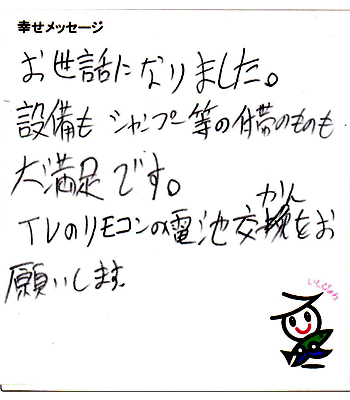 幸せメッセージ
お世話になりました。
設備も シャンプー等の付帯のものも
大満足です。
かん
TVのリモコンの電池交換をお
願いします